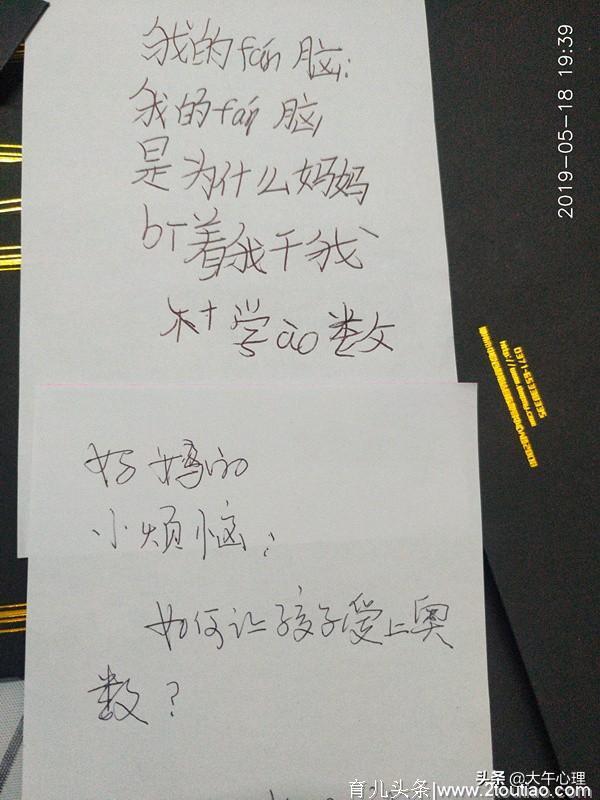 我的fán脑:
我的fán脑
是为什么妈妈
着我干我
学ào数
妈妈的
小烦恼:
如何让孩子爱上奥
数?
2019-05-18 19:39
头条 @大午心理
育儿头条|www.2toutiao.com